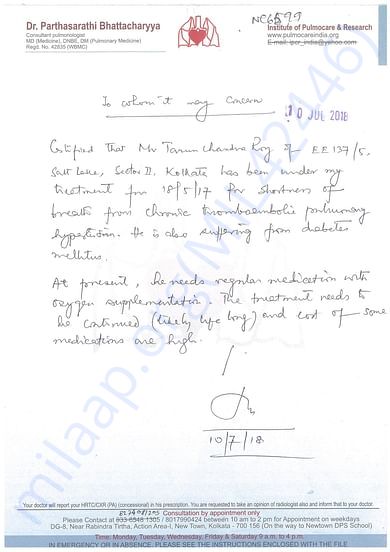 Dr. Parthasarathi Bhattacharyya
Consultant pulmonologist
MD (Medicine), DNBE, DM (Pulmonary Medicine)
Regd. No. 42835 (WBMC)
NC6599
Institute of Pulmocare & Research
www.pulmocareindia.org
E-mail: ipcr_india@yahoo.com
To whom it may concern
10 JUL 2018
Certified that Mr Tarun Chandra Roy of EE 137/5,
Salt Lake, Sector II, Kolkata has been under my
treatment from 18/5/17 for shortness of
breath from chronic thromboembolic pulmonary
hypertension. He is also suffering from diabetes
mellitus.
At present, he needs regular medication with
oxygen supplementation. The treatment needs to
be continued (likely life long) and cost of some
medications are high.
10/7/18
milaap.org
Your doctor will report your HRTC/CXR (PA) (concessional) in his prescription. You are requested to take an opinion of radiologist also and inform that to your doctor.
Consultation by appointment only
Please Contact at 033 6548 1305 / 8017990424 between 10 am to 2 pm for Appointment on weekdays
DG-8, Near Rabindra Tirtha, Action Area-I, New Town, Kolkata - 700 156 (On the way to Newtown DPS School)
Time: Monday, Tuesday, Wednesday, Friday & Saturday 9 a.m. to 4 p.m.
IN EMERGENCY OR IN ABSENCE, PLEASE SEE THE INSTRUCTIONS ENCLOSED WITH THE FILE